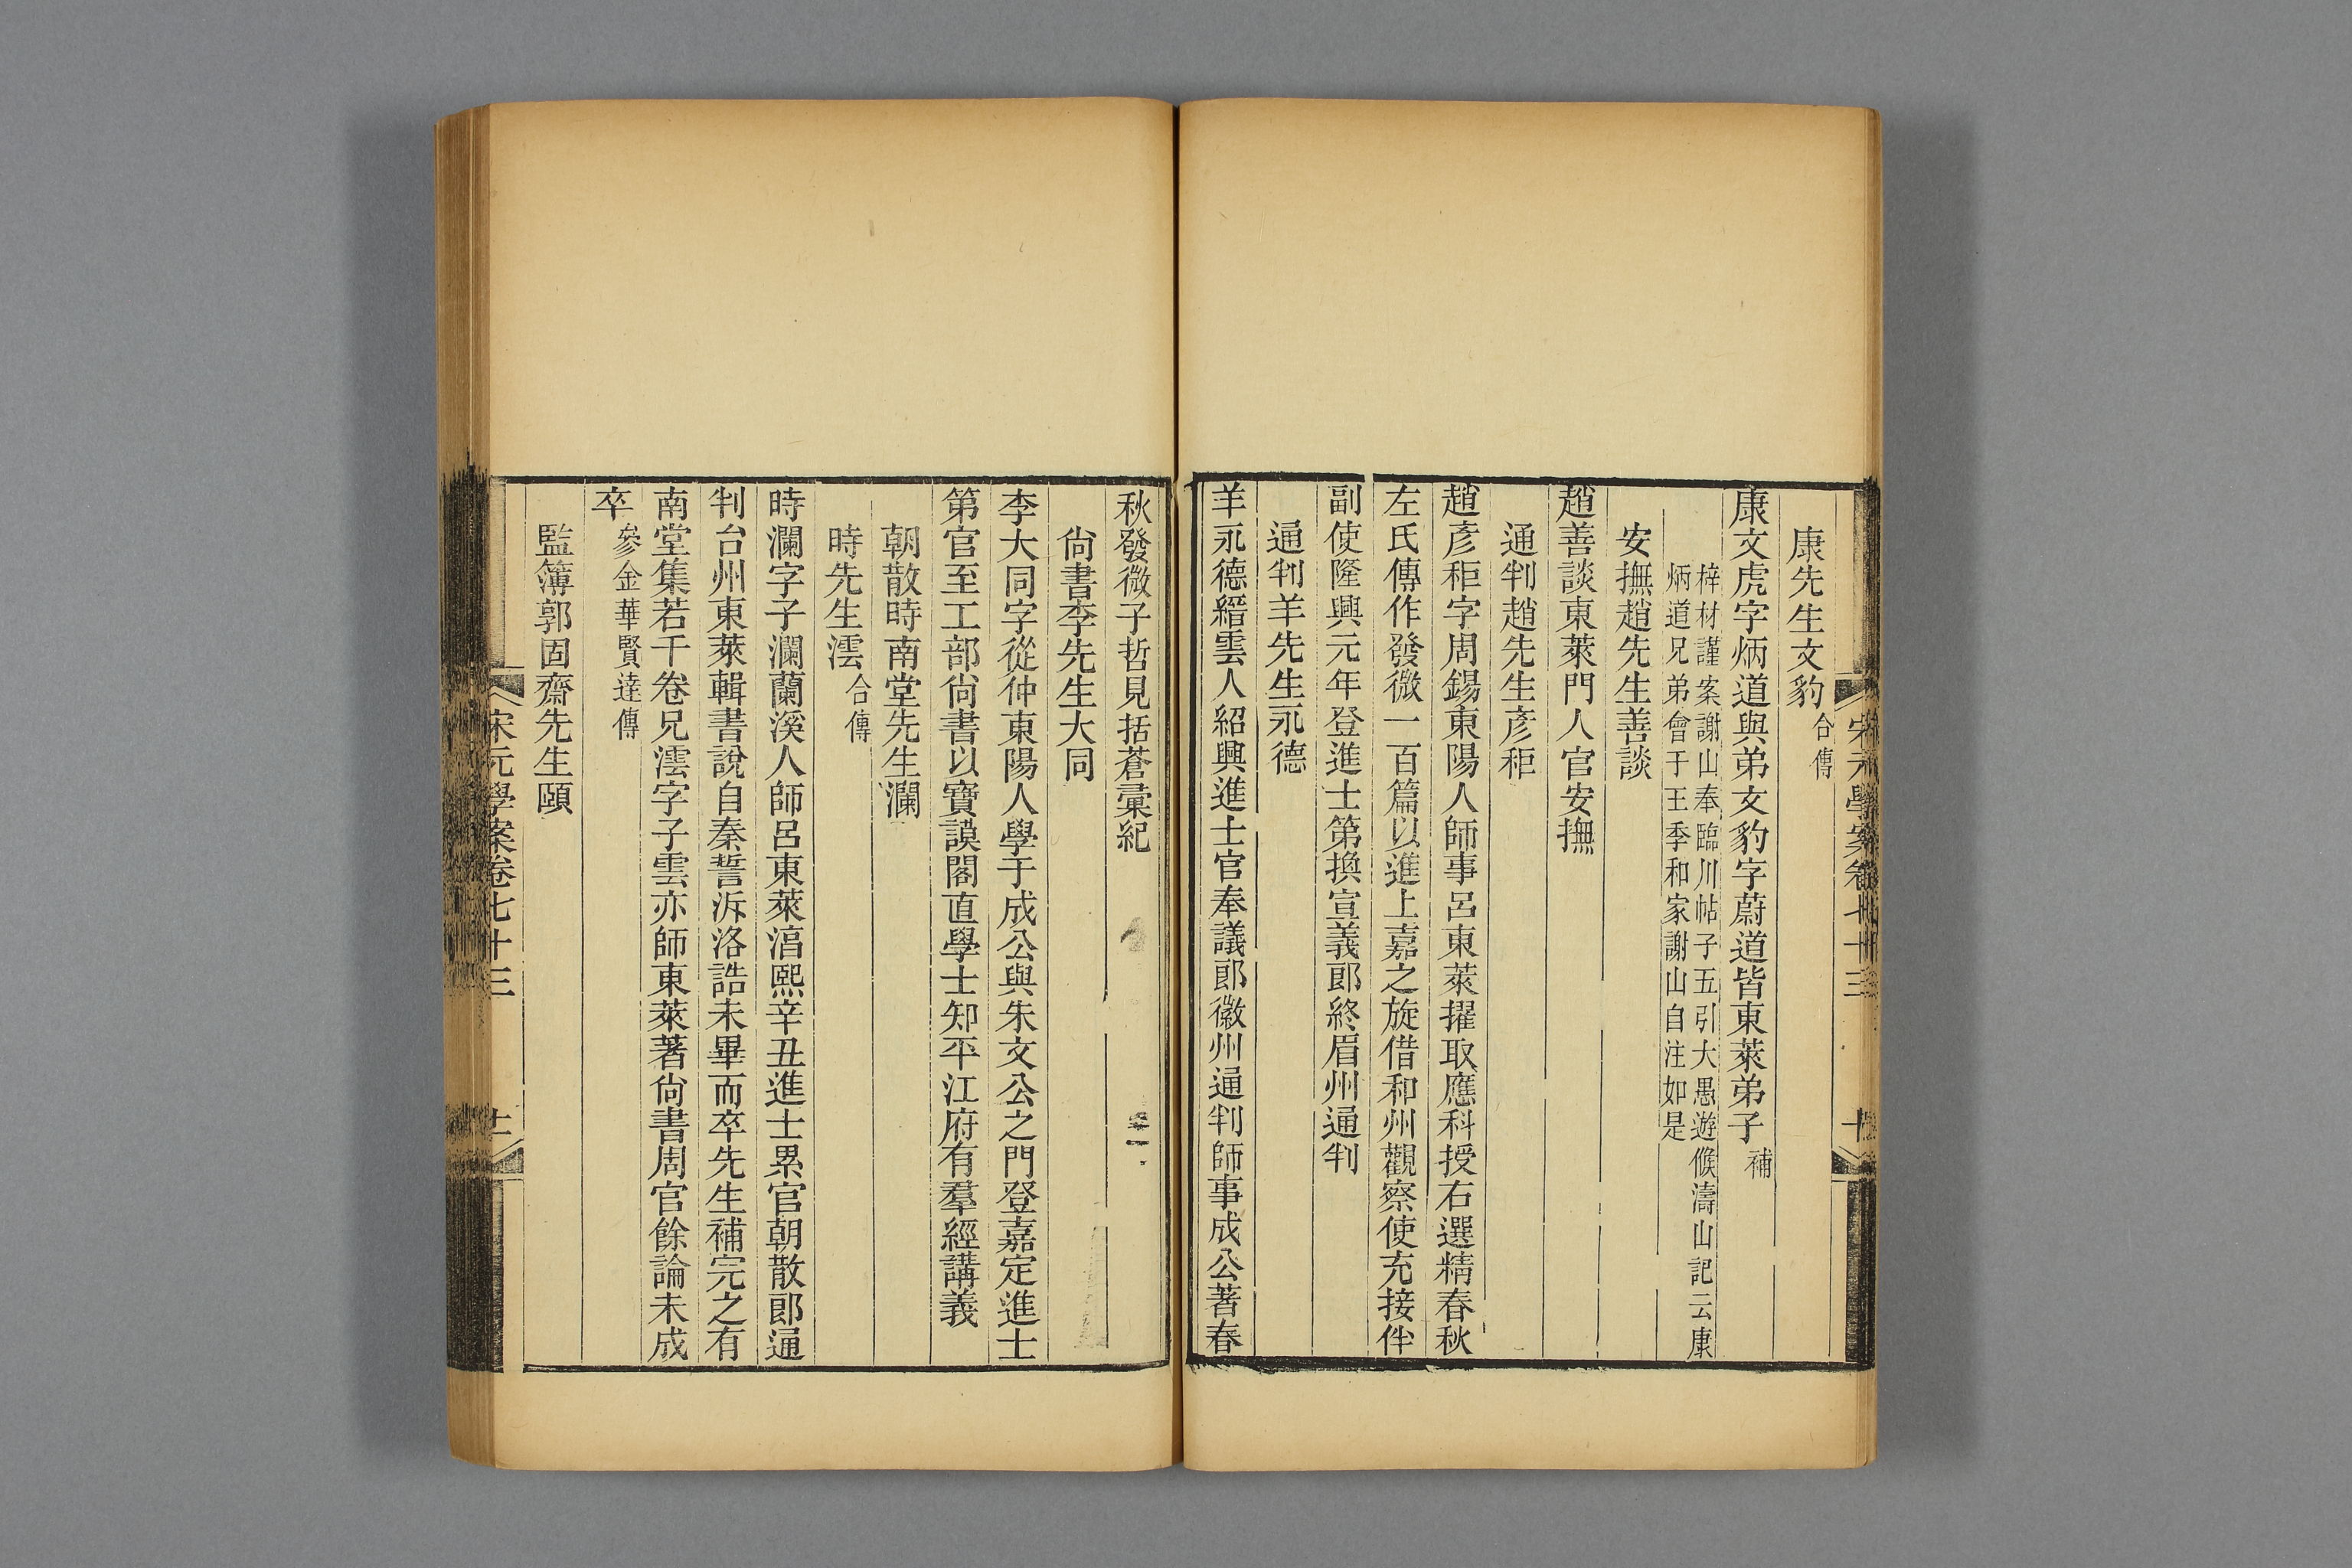 宋元學案卷七十三
十
康先生文豹合傳
康文虎字炳道與弟文豹字蔚道皆東萊弟子補
梓材謹案謝山奉臨川帖子五引大愚遊候濤山記云康
炳道兄弟會于王季和家謝山自注如是
安撫趙先生善談
趙善談東萊門人官安撫
通判趙先生彥秬
趙彥秬字周錫東陽人師事呂東萊擢取應科授右選精春秋
左氏傳作發微一百篇以進上嘉之旋借和州觀察使充接伴
副使隆興元年登進士第換宣義郞終眉州通判
通判羊先生永德
羊永德縉雲人紹興進士官奉議郞徽州通判師事成公著春
秋發微子哲見括蒼彙紀
尙書李先生大同
李大同字從仲東陽人學于成公與朱文公之門登嘉定進士
第官至工部尙書以寶謨閣直學士知平江府有羣經講義
朝散時南堂先生瀾
時先生澐合傳
時瀾字子瀾蘭溪人師呂東萊淳熙辛丑進士累官朝散郞通
判台州東萊輯書說自秦誓泝洛誥未畢而卒先生補完之有
南堂集若干卷兄澐字子雲亦師東萊著尙書周官餘論未成
卒參金華賢達傳
監簿郭固齋先生頤
宋元學案卷七十三
十一